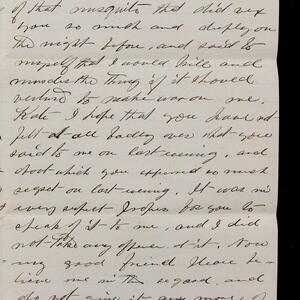 of that musquito that did vex
you so much and deeply on
the night before, and said to
myself that I would kill and
the thing if it should
venture to make war on me.
Kate I hope that you have not
felt at all badly over what you
said to me on last evening, and
about which you expressed so much
regret on last evening. It was in
every respect proper for you to
speak of it to me, and I did
not take any offence at it. Now
my good friend please be-
lieve me in this regard, and
do not give it any more